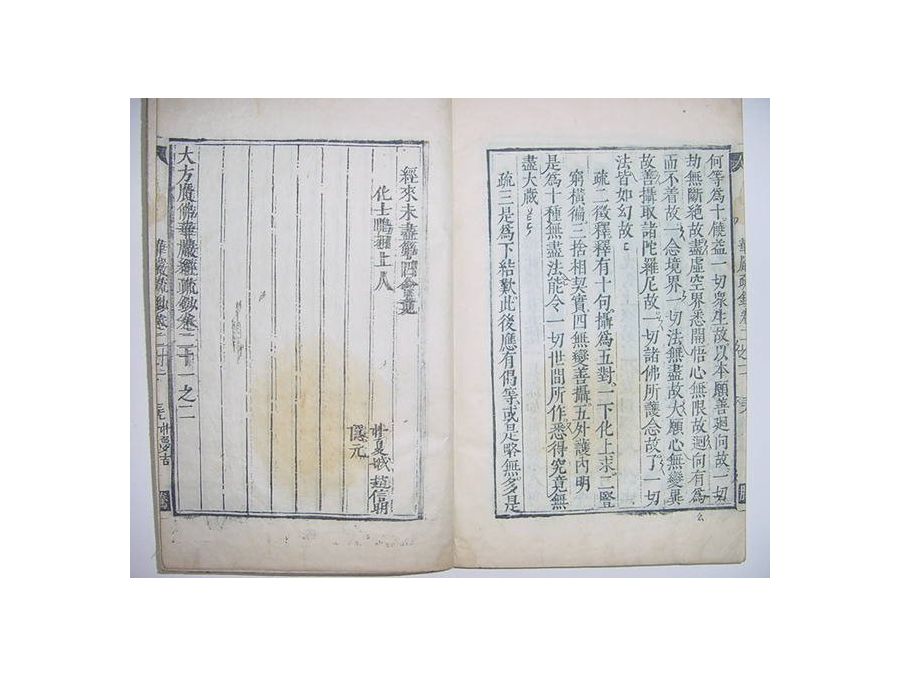 何等為十饒益一切衆生故以本願善廻向故一切
劫無斷絶故盡虛空界悉開悟心無限故廻向有為
而不着故一念境界一切法無盡故大願心無變異
故善攝取諸陀羅尼故一切諸佛所護念故了一切
法皆如幻故
疏二徵釋釋有十句攝為五對一下化上求二竪
窮橫徧三捨相契實四無變善攝五外護內明
是為十種無盡法能令一切世間所作悉得究竟無
盡大藏
疏三是為下結歎此後應有偈等或是略無多是
經來未盡
化士 上人
趙信明
隱元
大方廣佛華嚴經疏鈔卷二十一之二